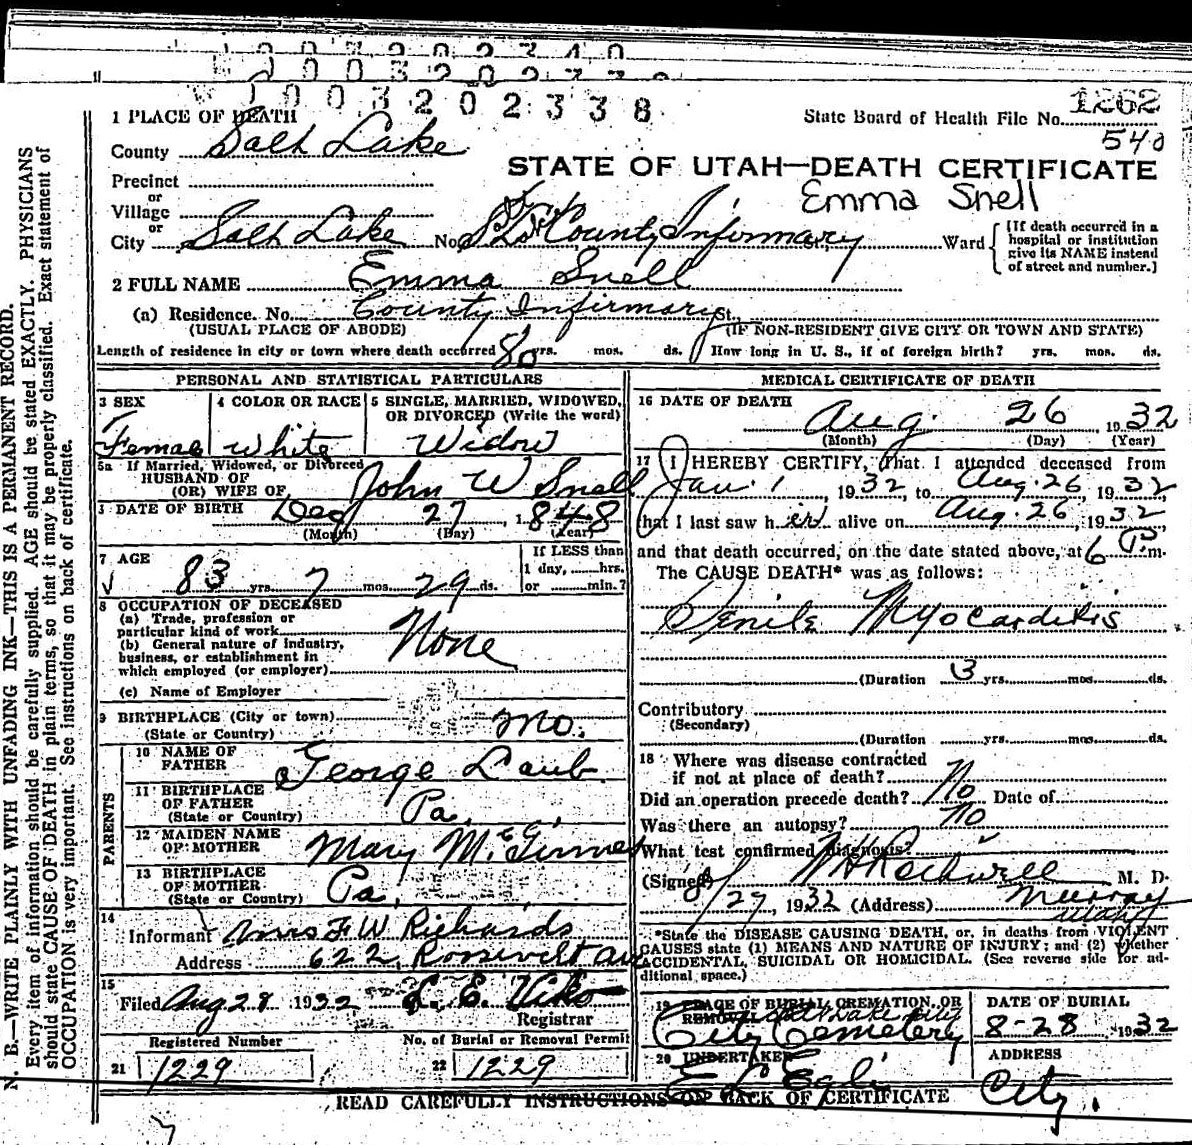 003202340
003202339
003202338
1262
1 PLACE OF DEATH
State Board of Health File No.
540
County Salt Lake
STATE OF UTAH—DEATH CERTIFICATE
Precinct
or
Emma Snell
Village
or
City Salt Lake No. S L County Infirmary Ward
[If death occurred in a hospital or institution give its NAME instead of street and number.]
2 FULL NAME Emma Snell
(a) Residence. No. County Infirmary St.,
(USUAL PLACE OF ABODE) (IF NON-RESIDENT GIVE CITY OR TOWN AND STATE)
Length of residence in city or town where death occurred 80 yrs. mos. ds. How long in U. S., if of foreign birth? yrs. mos. ds.
PERSONAL AND STATISTICAL PARTICULARS
3 SEX
Female
4 COLOR OR RACE
White
5 SINGLE, MARRIED, WIDOWED, OR DIVORCED (Write the word)
Widow
5a If Married, Widowed, or Divorced
HUSBAND OF
(OR) WIFE OF John W Snell
DATE OF BIRTH Dec 27, 1848
(Month) (Day) (Year)
7 AGE
83 yrs. 7 mos. 29 ds.
If LESS than
1 day, hrs.
or min.?
8 OCCUPATION OF DECEASED
(a) Trade, profession or
particular kind of work
None
(b) General nature of industry,
business, or establishment in
which employed (or employer)
(c) Name of Employer
9 BIRTHPLACE (City or town)
(State or Country) Mo.
PARENTS
10 NAME OF
FATHER George Laub
11 BIRTHPLACE
OF FATHER Pa.
(State or Country)
12 MAIDEN NAME
OF MOTHER Mary
13 BIRTHPLACE
OF MOTHER Pa.
(State or Country)
14
Informant Mrs F W Richards
Address 622 Roosevelt Ave
15
Filed Aug 28 1932 Registrar
Registered Number
21 1229
No. of Burial or Removal Permit
22 1229
MEDICAL CERTIFICATE OF DEATH
16 DATE OF DEATH
Aug. 26 1932
(Month) (Day) (Year)
17 I HEREBY CERTIFY, That I attended deceased from
Jan. 1, 1932, to Aug. 26, 1932,
that I last saw her alive on Aug. 26, 1932,
and that death occurred, on the date stated above, at 6 P. m.
The CAUSE DEATH* was as follows:
Senile Myocarditis
(Duration 3 yrs. mos. ds.
Contributory
(Secondary)
(Duration yrs. mos. ds.
18 Where was disease contracted
if not at place of death?
Did an operation precede death? No Date of
Was there an autopsy? No
What test confirmed diagnosis?
(Signed) Rockwell M. D.
27, 1932 (Address) Murray
Utah
*State the DISEASE CAUSING DEATH, or, in deaths from VIOLENT
CAUSES state (1) MEANS AND NATURE OF INJURY; and (2) whether
ACCIDENTAL, SUICIDAL OR HOMICIDAL. (See reverse side for ad-
ditional space.)
19 PLACE OF BURIAL, CREMATION, OR
REMOVAL Salt Lake City
City Cemetery
DATE OF BURIAL
8-28, 1932
20 UNDERTAKER
ADDRESS
City.
READ CAREFULLY INSTRUCTIONS ON BACK OF CERTIFICATE
N. B.—WRITE PLAINLY WITH UNFADING INK—THIS IS A PERMANENT RECORD.
Every item of information should be carefully supplied. AGE should be stated EXACTLY. PHYSICIANS
should state CAUSE OF DEATH in plain terms, so that it may be properly classified. Exact statement of
OCCUPATION is very important. See instructions on back of certificate.